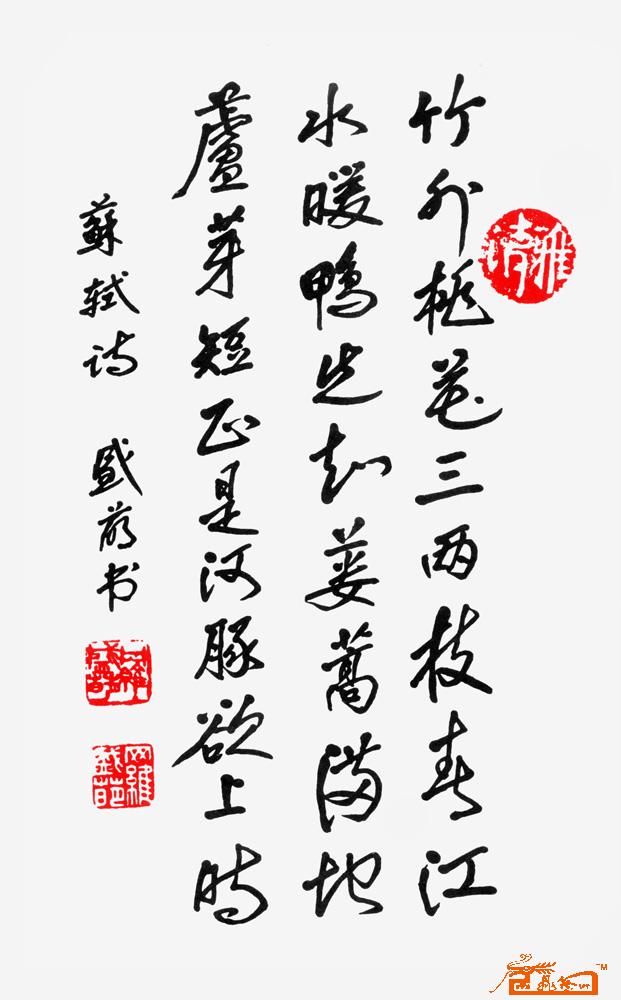 竹外桃花三两枝春江
水暖鸭先知蒌蒿满地
蘆芽短正是河豚欲上时
蘇轼诗 盛 书